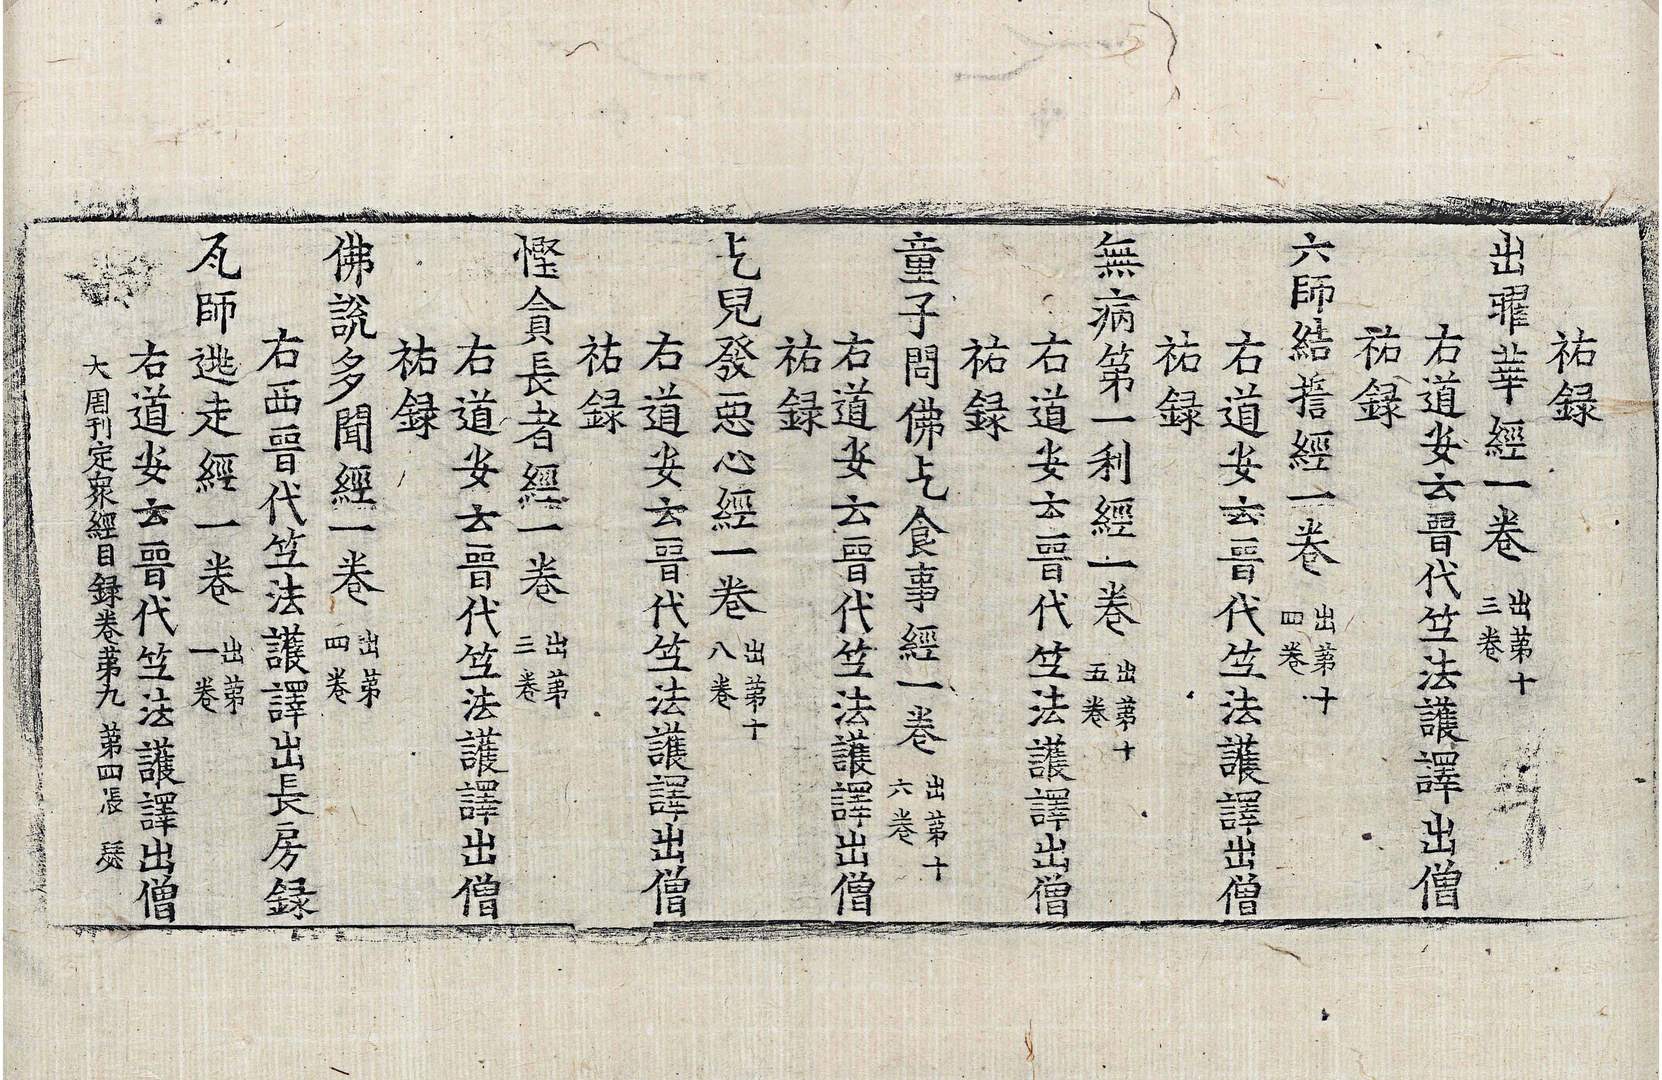 祐録
出曜華經一卷 出第十三卷
右道安云晋代竺法護譯出僧
祐録
六師結誓經一卷 出第十四卷
右道安云晋代竺法護譯出僧
祐録
無病第一利經一卷 出第十五卷
右道安云晋代竺法護譯出僧
祐録
童子問佛乞食事經一卷 出第十六卷
右道安云晋代竺法護譯出僧
祐録
乞兒發惡心經一卷 出第十八卷
右道安云晋代竺法護譯出僧
祐録
慳貪長者經一卷 出第三卷
右道安云晋代竺法護譯出僧
祐録
佛說多聞經一卷 出第四卷
右西晋代竺法護譯出長房録
瓦師逃走經一卷 出第一卷
右道安云晋代竺法護譯出僧
大周刊定衆經目録卷第九 第四張 瑟